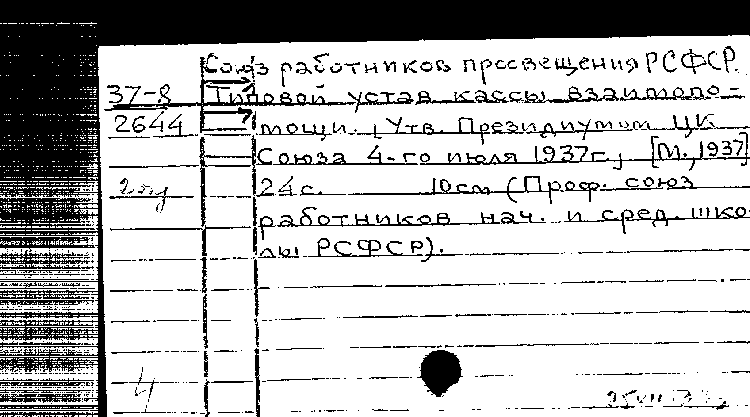 Союз работников просвещения РСФСР.
37-8 Типовой устав кассы взаимопо-
2644 мощи. [Утв. Президиумом ЦК
Союза 4-го июля 1937г.] [М., 1937]
24с. 10см (Проф. союз
работников нач. и сред. шко-
лы РСФСР).
4